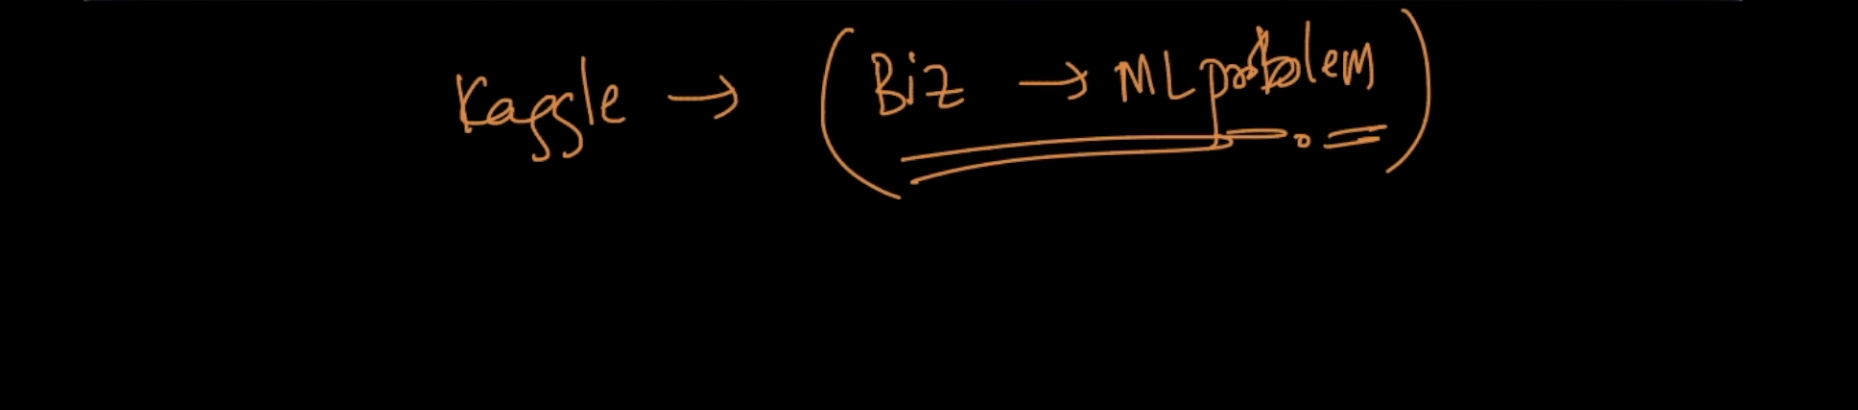 Kaggle → (Biz → ML problem)